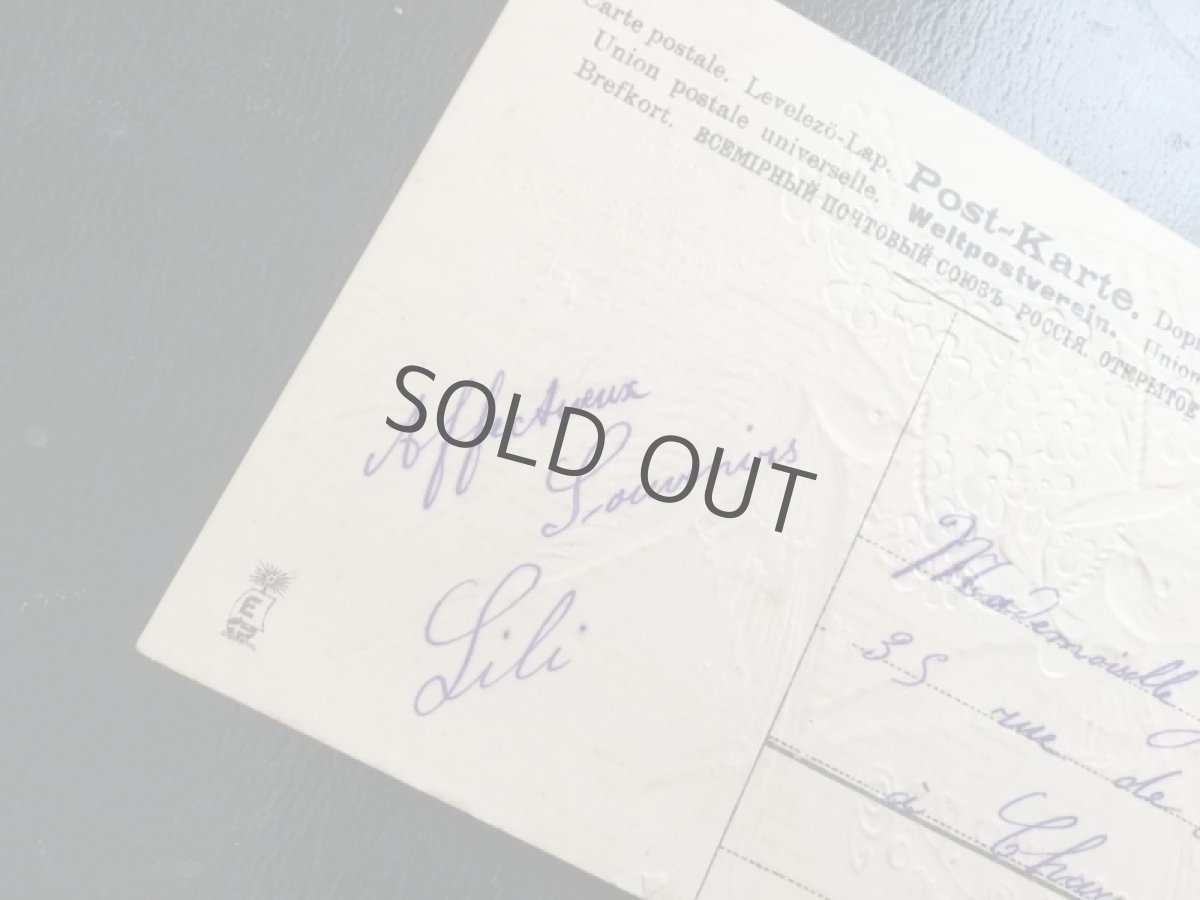 Carte postale. Levelező-Lap. Post-Karte.
Union postale universelle. Weltpostverein. Union
Brefkort. ВСЕМІРНЫЙ ПОЧТОВЫЙ СОЮЗЪ РОССІЯ. ОТКРЫТОЕ
Affectueux
Souvenirs
Lili
SOLD OUT
Mademoiselle
35 rue de
à